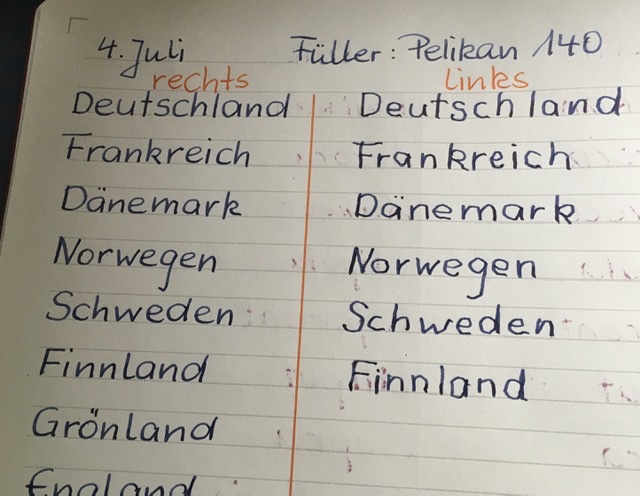 4. Juli Füller: Pelikan 140
rechts links
Deutschland Deutschland
Frankreich Frankreich
Dänemark Dänemark
Norwegen Norwegen
Schweden Schweden
Finnland Finnland
Grönland
England